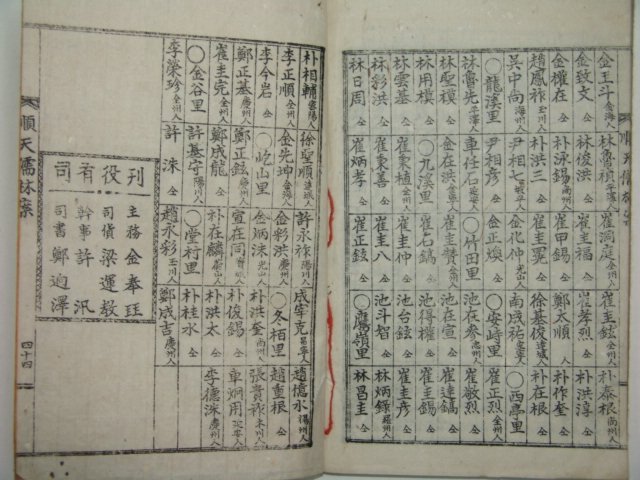 金王斗 金海人 林魯禎 平澤人 崔洞庭 全州人 崔圭鉉 仝 朴泰根 尚州人
金敎文 仝 林俊洪 仝 崔圭福 仝 崔孝烈 仝 朴洪淳 仝
金權在 仝 朴泳錫 尚州人 崔甲錫 仝 鄭太順 人 朴作奎 仝
趙鳳祚 玉川人 朴洪三 仝 崔圭冕 仝 徐基俊 達城人 朴在根 仝
吳中尚 海州人 尹相七 坡平人 金化仲 光山人 南成祐 宜寧人 ○西亭里
○龍溪里 尹相彦 仝 金正煥 仝 ○安峙里 崔正烈 全州人
林魯先 平澤人 車任石 延安人 ○竹田里 池在參 忠州人 崔敬烈 仝
林聖模 仝 金在洪 金海人 崔圭贊 全州人 池在宣 仝 崔達鎬 仝
林用模 仝 ○九溪里 崔石鎬 仝 池得權 仝 崔圭錫 仝
林雲基 仝 崔東植 全州人 崔圭仲 仝 池台鉉 仝 崔圭彦 仝
林彩洪 仝 崔東善 仝 崔圭八 仝 池斗智 仝 林炳錄 羅州人
林日周 仝 崔炳孝 仝 崔正鉉 仝 ○鷹嶺里 林昌圭 仝
朴相輔 密陽人 徐聖順 達城人 許永祚 陽川人 成宰克 昌寧人 趙憶水
李正順 全州人 金先坤 金海人 金彩洪 慶州人 ○冬栢里 趙重根 仝
李今岩 仝 ○屹山里 金炳洙 光山人 朴洪奎 尚州人 張貴祚 木川人
鄭正基 慶州人 鄭正鉉 仝 宣在同 寶城人 朴俊錫 仝 車炳用 延安人
崔圭完 全州人 鄭成龍 仝 朴在麟 朴洪太 仝 李德洙 慶州人
○金谷里 許基宇 陽川人 ○堂村里 朴桂水 仝
李榮珍 全州人 許洙 仝 趙永彩 玉川人 鄭成吉 慶州人
刊役有司
主務 金奉珏
司貨 梁運
幹事 許汎
司書 鄭迥澤
順天儒林案
四十四